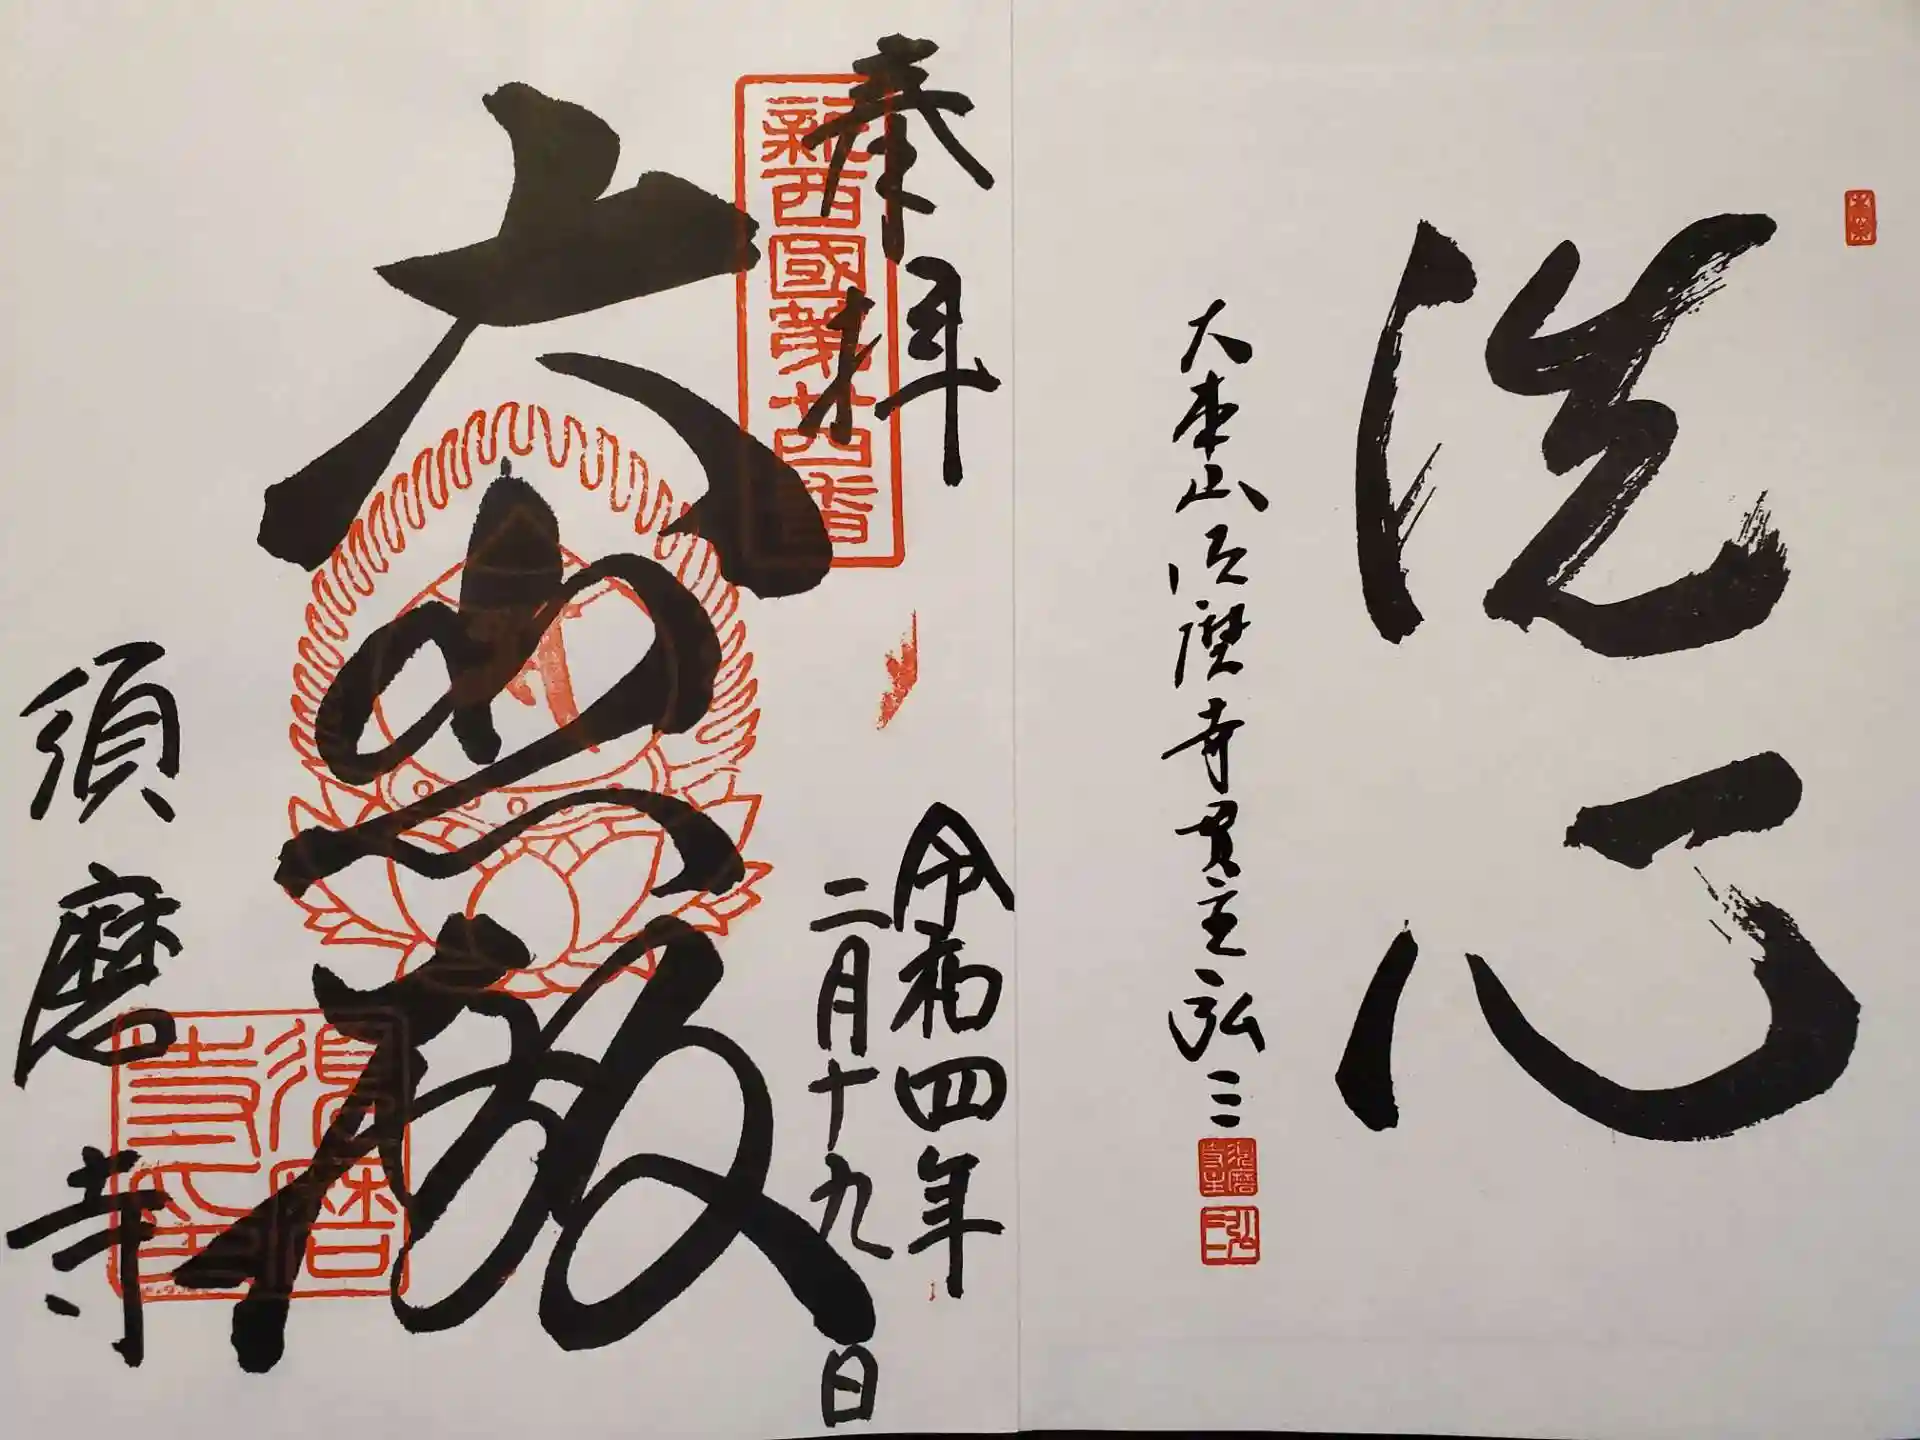 洗心
大本山須磨寺貫主弘三
須磨寺主
奉拝
新西國第廿四番
令和四年
二月十九日
大悲殿
須磨寺
須磨寺印